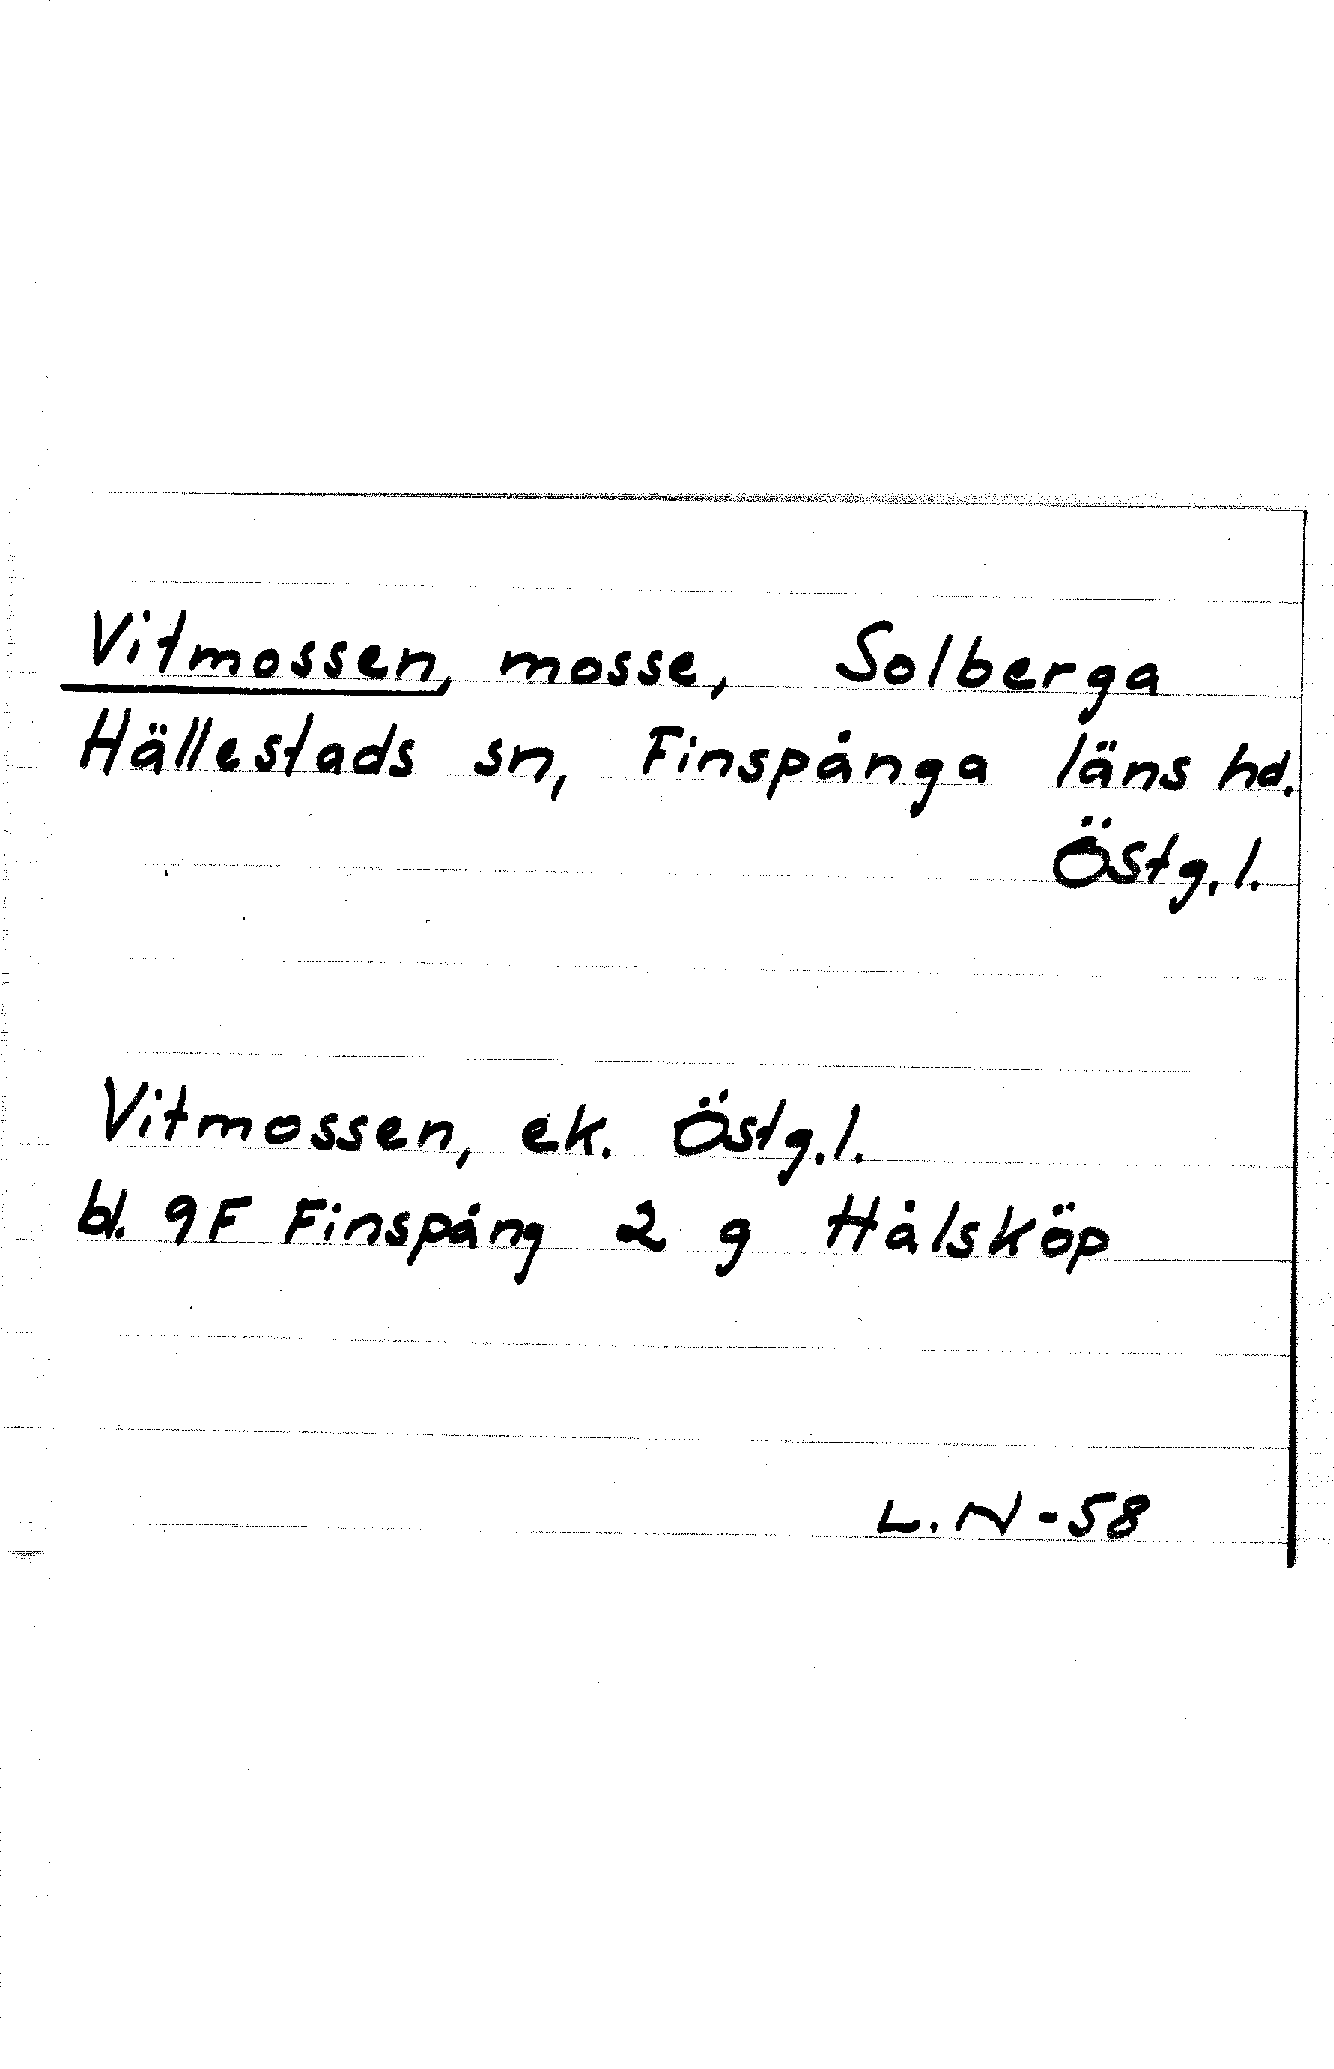 Vitmossen, mosse, Solberga
Hällestads sn, Finspånga läns hd.
Östg. l.
Vitmossen, ek. Östg. l.
bl. 9F Finspång 2 g Hålsköp
L. N - 58